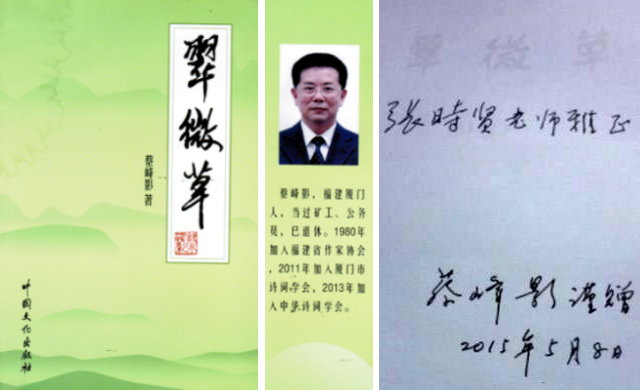 翠微草
蔡峰影 著
中国文化出版社
蔡峰影，福建厦门
人，当过矿工、公务
员，已退休。1980年
加入福建省作家协会
，2011年加入厦门市
诗词学会，2013年加
入中华诗词学会。
翠微草
张時贤老师雅正
蔡峰影谨赠
2015年5月8日